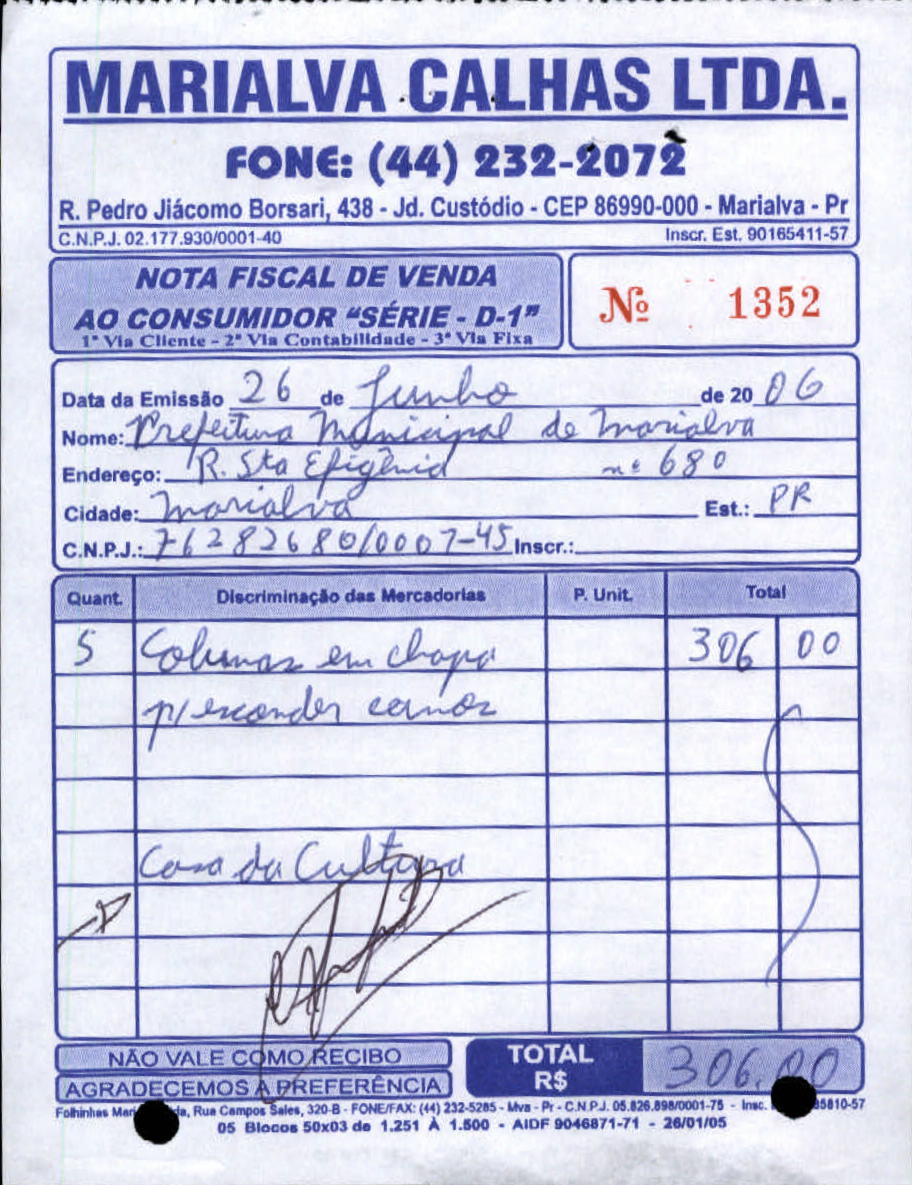 MARIALVA CALHAS LTDA.
FONE: (44) 232-2072
R. Pedro Jiácomo Borsari, 438 - Jd. Custódio - CEP 86990-000 - Marialva - Pr
C.N.P.J. 02.177.930/0001-40 Inscr. Est. 90165411-57
NOTA FISCAL DE VENDA
AO CONSUMIDOR "SÉRIE - D-1"
1ª Via Cliente - 2ª Via Contabilidade - 3ª Via Fixa
Nº 1352
Data da Emissão 26 de Junho de 2006
Nome: Prefeitura Municipal de Marialva
Endereço: R. Sta Efigênia nº 680
Cidade: Marialva Est.: PR
C.N.P.J.: 76282680/0007-45 Inscr.:
Quant. Discriminação das Mercadorias P. Unit. Total
5 Colunas em chapa 306 00
p/ esconder canos
Casa da Cultura
NÃO VALE COMO RECIBO
AGRADECEMOS A PREFERÊNCIA
TOTAL
R$ 306,00
Folhinhas Rua Campos Sales, 320-B - FONE/FAX: (44) 232-5285 - Mva - Pr - C.N.P.J. 05.826.898/0001-75 - Insc. 35810-57
05 Blocos 50x03 de 1.251 À 1.500 - AIDF 9046871-71 - 26/01/05